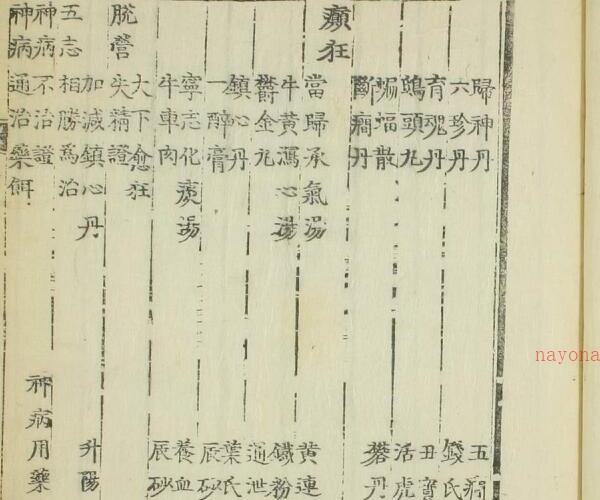 歸神丹
六珍丹
育魂丹
鴟頭丸
蝙蝠散
斷癇丹
五癇
錢氏
丑寶
活虎
礬丹
癲狂
當歸承氣湯
牛黃瀉心湯
鬱金丸
鎮心丹
一醉膏
寧志化痰湯
牛車肉
黃連
鐵粉
通泄
葉氏
辰砂
養血
辰砂
大下愈狂
脫營失精證
加減鎮心丹
升陽
五志相勝爲治
神病不治證
神病用藥
神病通治藥餌
nayona